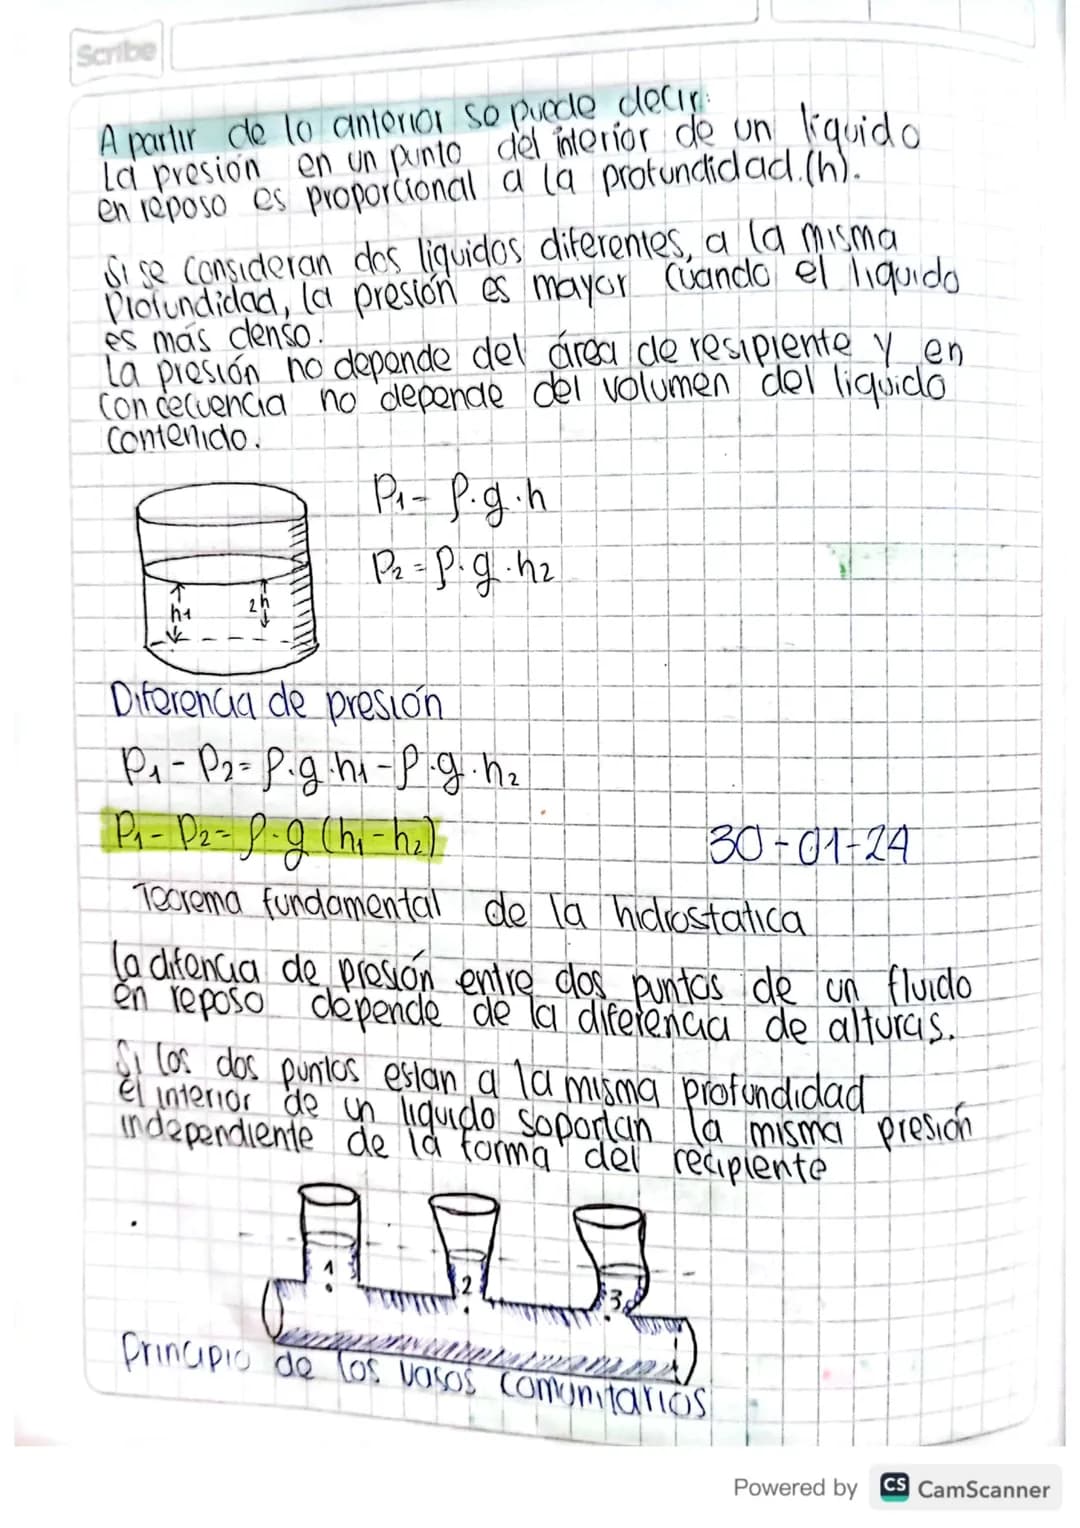 Scribe
A partir de lo anterior se puede decir:
La presión en un punto del interior de un líquido
en reposo es proporcional a la profundidad.(h).
Si se consideran dos liquidos diferentes, a la misma
Profundidad, la presión es mayor cuando el liquido
es más denso.
La presión no depende del área de resipiente y en
concecuencia no depende del volumen del liquido
contenido.
P1- ρ.g.h
P2=ρ.g.h2
h1
2h
Diferencia de presión
P1-P2=ρ.g.h1-ρ.g.h2
P1-P2=ρ.g(h1-h2)
30-01-24
Teorema fundamental de la hidrostatica
La difencia de presión entre dos puntos de un fluido
en reposo depende de la diferencia de alturas.
Si los dos puntos estan a la misma profundidad
el interior de un liquido soportan la misma presión
independiente de la forma del recipiente
1
2
3
Principio de los vasos comunitarios
Powered by CS CamScanner